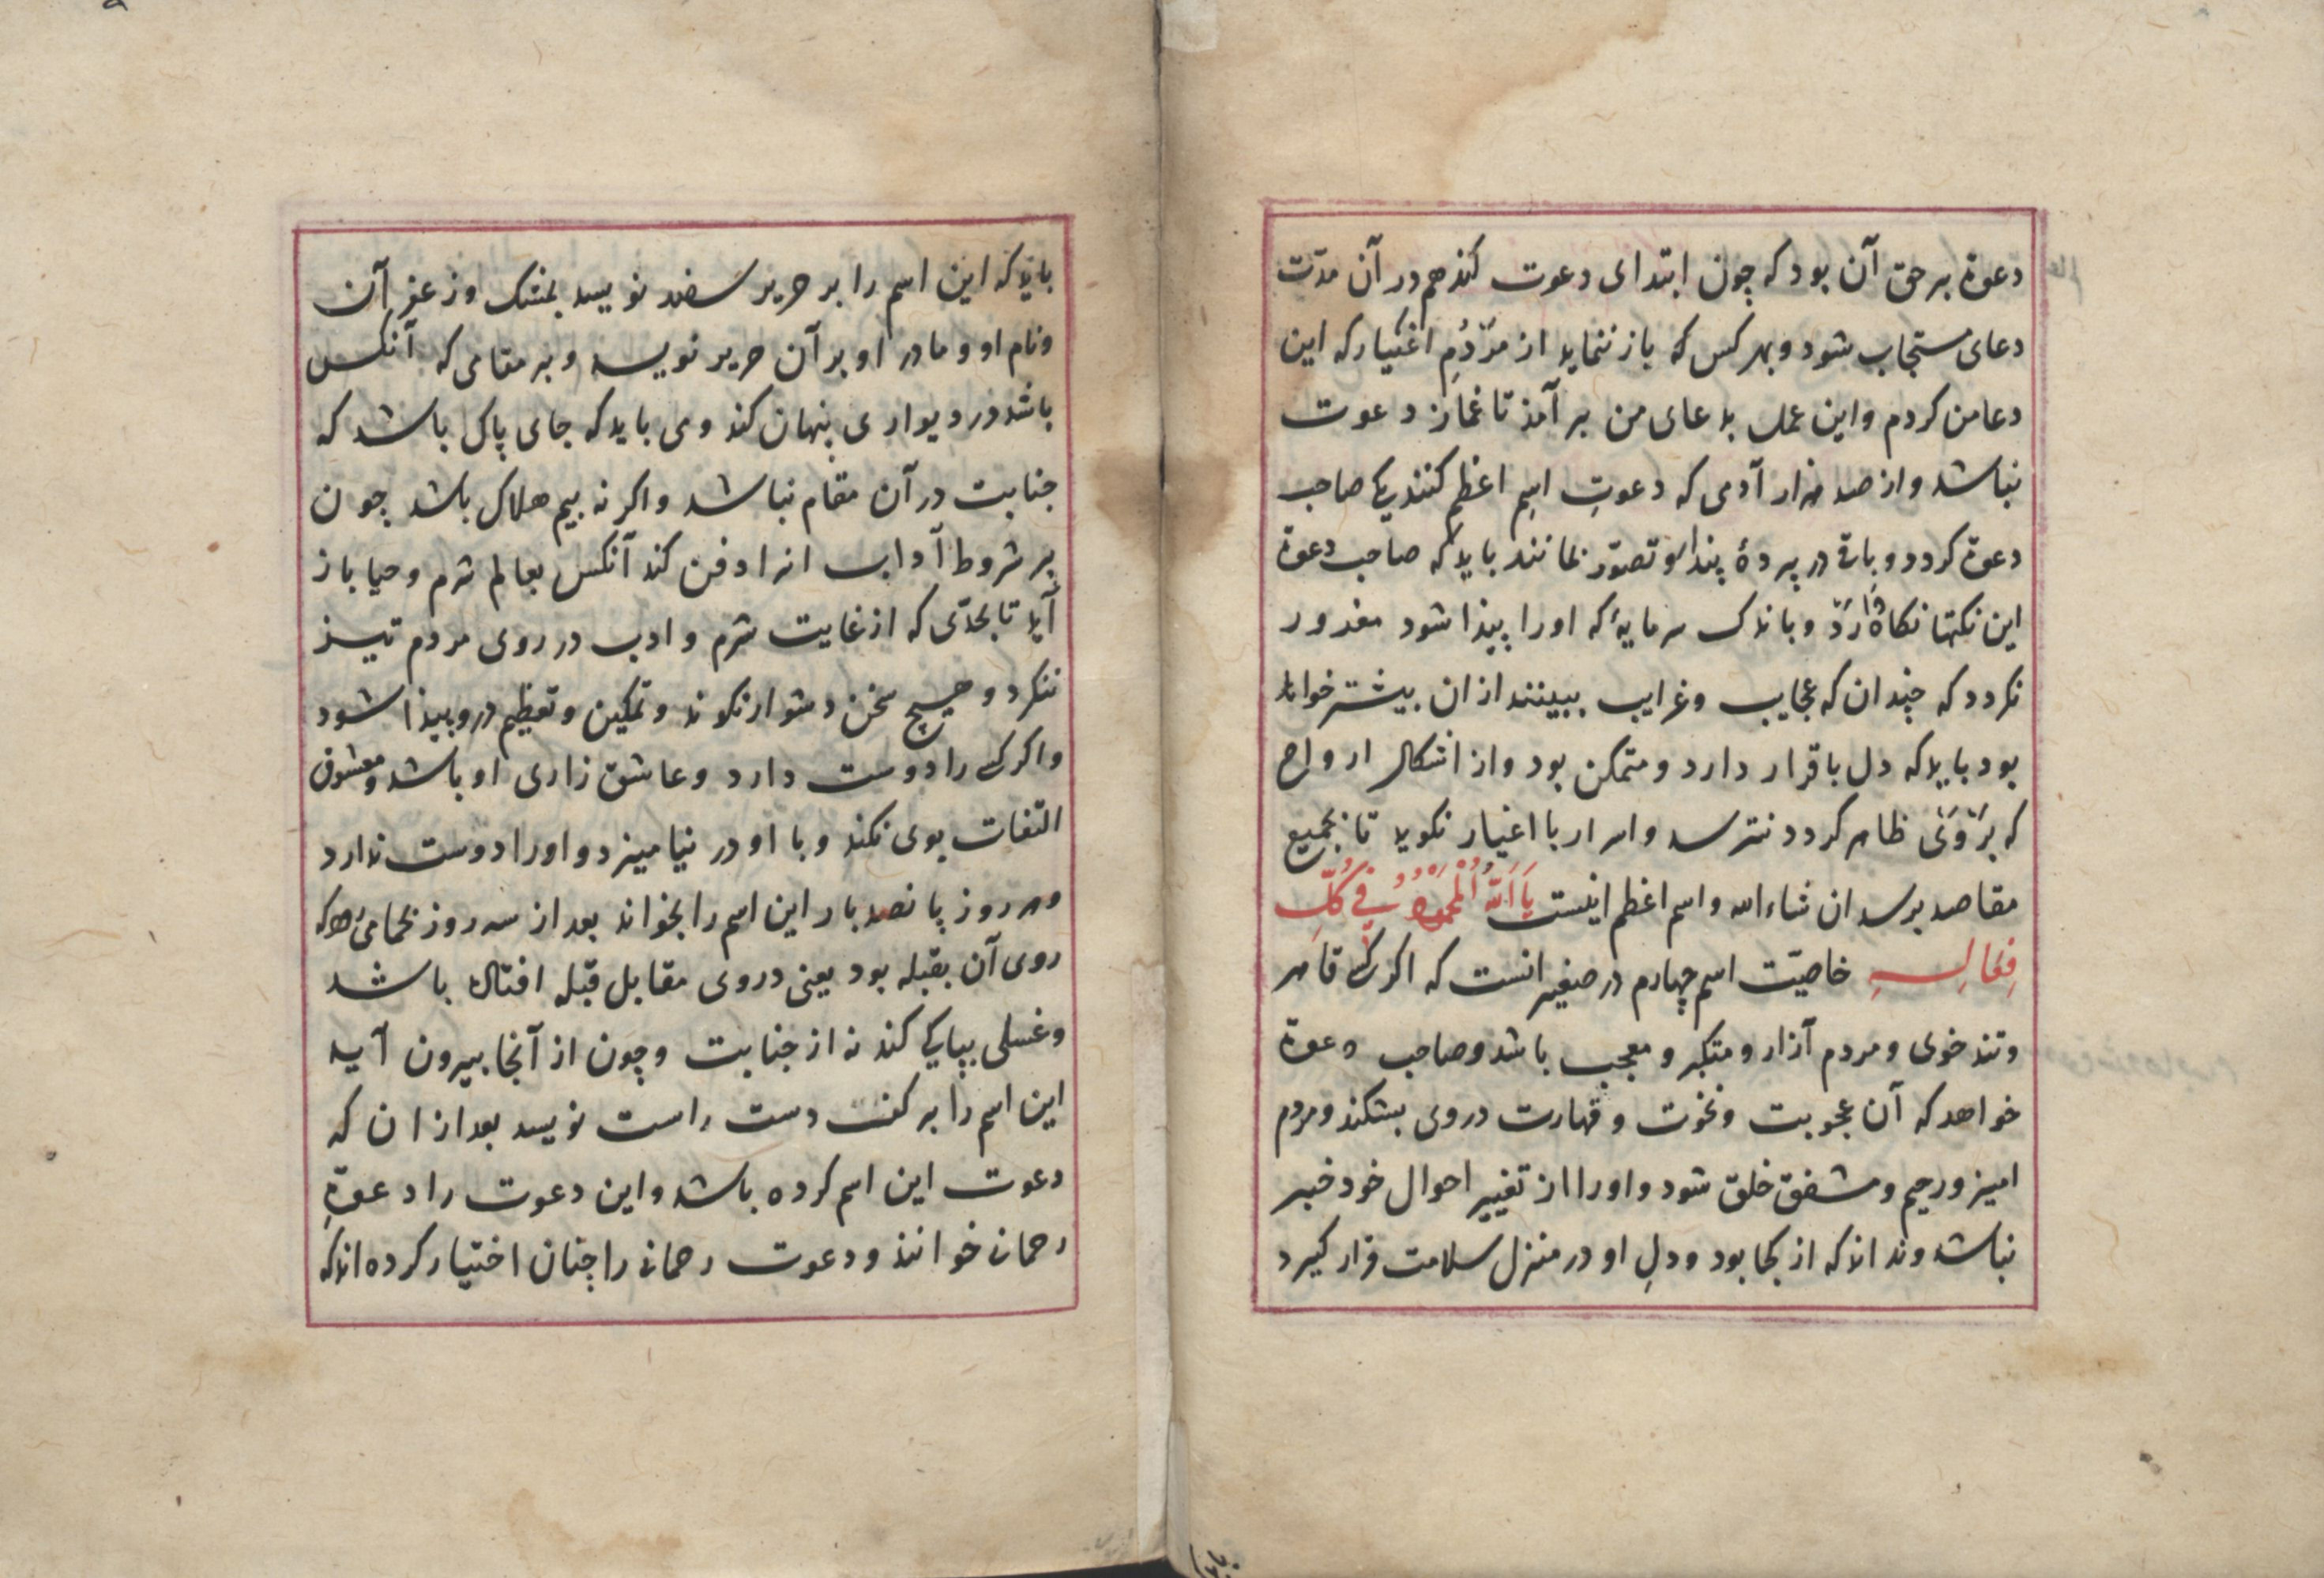 دعوة برحق آن بود که چون ابتدای دعوت کند هم در آن مدّت
دعای مستجاب شود و بهر کس که باز ننماید از مَرْدُمِ اغیار که این
دعا من کردم و این عمل بدعای من بر آمذ تا غماز دعوت
نباشد و از صد هزار آدمی که دعوتِ اسمِ اعظم کنند یکی صاحب
دعوة کردد و باقی در پردۀ پندار و تصوّر بمانند باید که صاحب دعوة
این نکتها نکاه دارَد و باندک سرمایۀ که اورا پیذا شود مغرور
نکردد که چندان که عجایب و غرایب ببینند ازان بیشتر خواهد
بود باید که دل باقرار دارد و متمکن بود و از اشکال ارواح
که بَرْوَیْ ظاهر کردد نترسد و اسرار با اغیار نکوید تا بجمیع
مقاصد برسد ان شاءالله و اسم اعظم اینست یَا اَللّٰهُ الْمَحْمُوْدُ فِی کُلِّ
فِعَالِــهِ خاصیّت اسم چهارم در صغیر انست که اکر کسی قاهر
و تند خوی و مردم آزار و متکبر و معجب باشد و صاحب دعوة
خواهد که آن عجوبت و نخوت و قهارت در وی بشکند و مردم
امیز و رحیم و مشفق خلق شود و اورا از تغییر احوال خود خبر
نباشد و نداند که از کجا بود و دلِ او در منزل سلامت قرار کیرد
باید که این اسم را بر حریر سفید نویسد بمشک و زعفرآن
و نام او و مادر او بر آن حریر نویسد و بر مقامی که آنکس
باشد در دیواری پنهان کند و می باید که جای پاک باشد که
جنابت در آن مقام نباشد و اکر نه بیم هلاک باشد چون
بر شروط آداب انرا دفن کند آنکس بعالم شرم و حیا باز
آید تا بحدّی که از غایت شرم و ادب در روی مردم تیز
ننکرد و هیچ سخن دشوار نکوند و تمکین و تعظیم درو پیذا شود
و اکر کسی را دوست دارد و عاشق زاری او باشد و معشوق
التفات بوی نکند و با او در نیامیزد و اورا دوست ندارد
هر روز پانصد بار این اسم را بخواند بعد از سه روز بحمامی رود که
روی آن بقبله بود یعنی در وی مقابل قبله افتاده باشد
و غسلی بپاکی کند نه از جنابت و چون از آنجا بیرون آید
این اسم را بر کف دست راست نویسد بعد ازان که
دعوت این اسم کرده باشد و این دعوت را دعوةِ
رحمانی خوانند و دعوت رحمانی را چنان اختیار کرده اند که